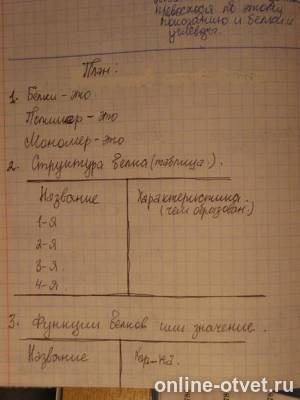 превосходя по этому
показанию и белки и
углеводы.
План:
1. Белки - это
Полимер - это
Мономер - это
2. Структура белка (таблица).
Название
Характеристика
(чем образован)
1-я
2-я
3-я
4-я
3. Функции белков или значение.
Название
Хар-ка.
online-otvet.ru